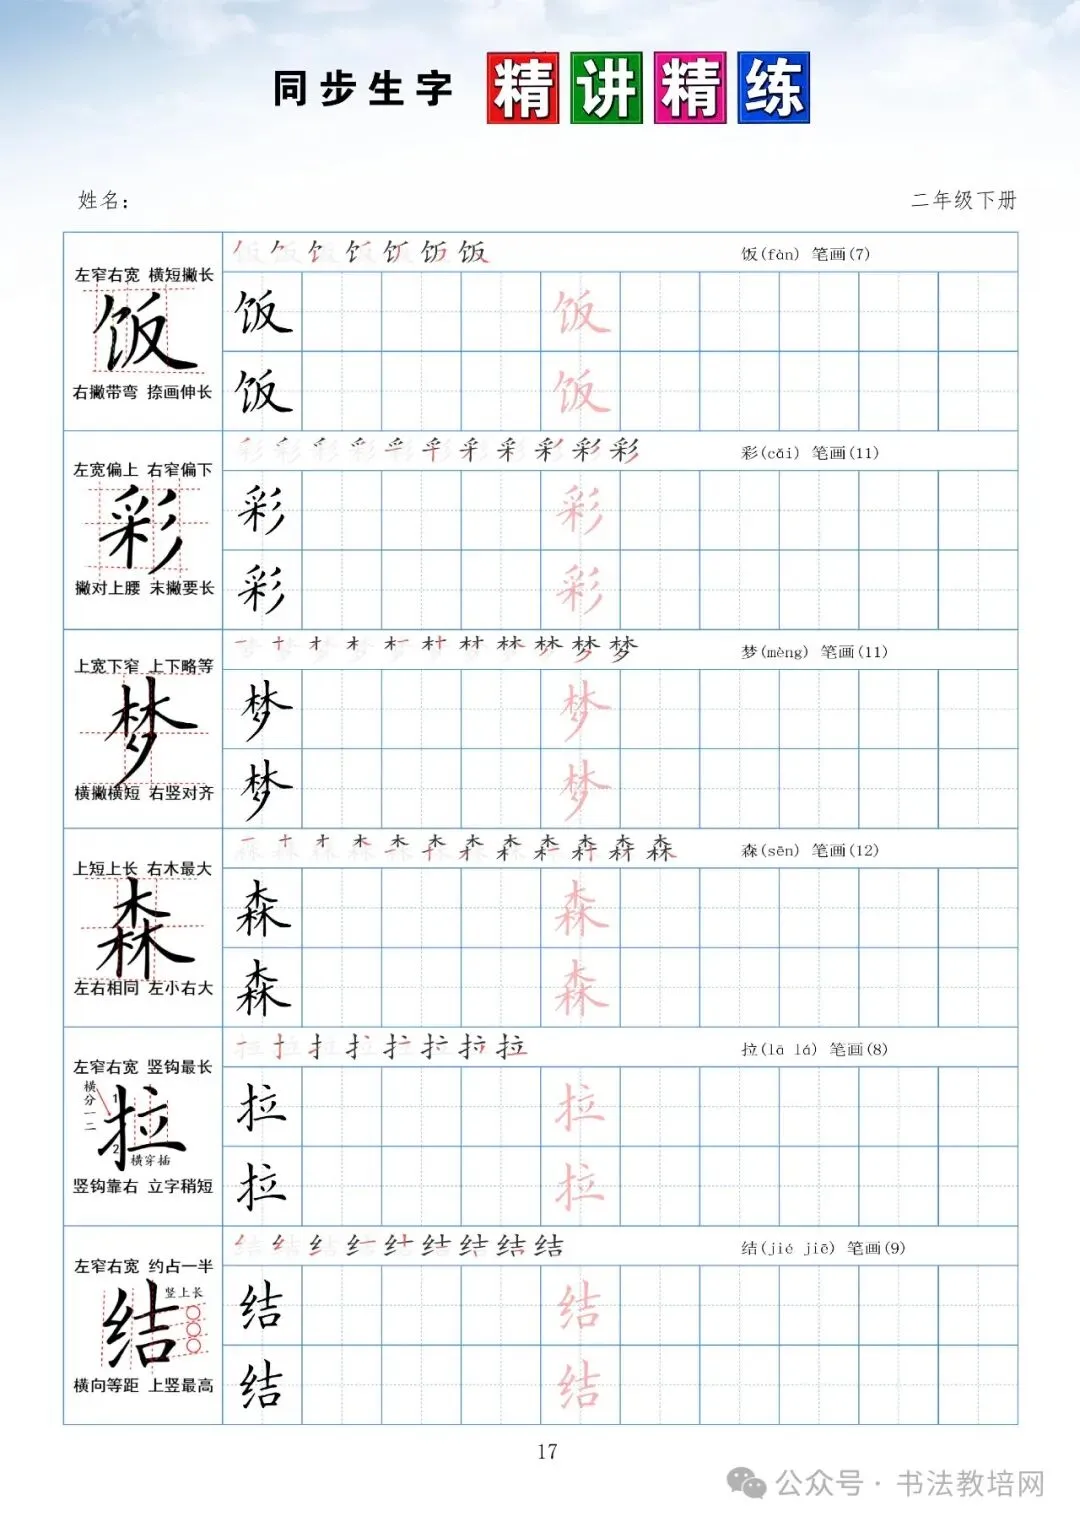 同步生字 精讲精练
姓名：
二年级下册
左窄右宽 横短撇长
饭
右撇带弯 捺画伸长
饭(fàn) 笔画(7)
饭 饭
饭 饭
左宽偏上 右窄偏下
彩
撇对上腰 末撇要长
彩(cǎi) 笔画(11)
彩 彩
彩 彩
上宽下窄 上下略等
梦
横撇横短 右竖对齐
梦(mèng) 笔画(11)
梦 梦
梦 梦
上短上长 右木最大
森
左右相同 左小右大
森(sēn) 笔画(12)
森 森
森 森
左窄右宽 竖钩最长
横分一二
1
拉
2
横穿插
竖钩靠右 立字稍短
拉(lā lá) 笔画(8)
拉 拉
拉 拉
左窄右宽 约占一半
竖上长
结
横向等距 上竖最高
结(jié jiē) 笔画(9)
结 结
结 结
17
公众号·书法教培网